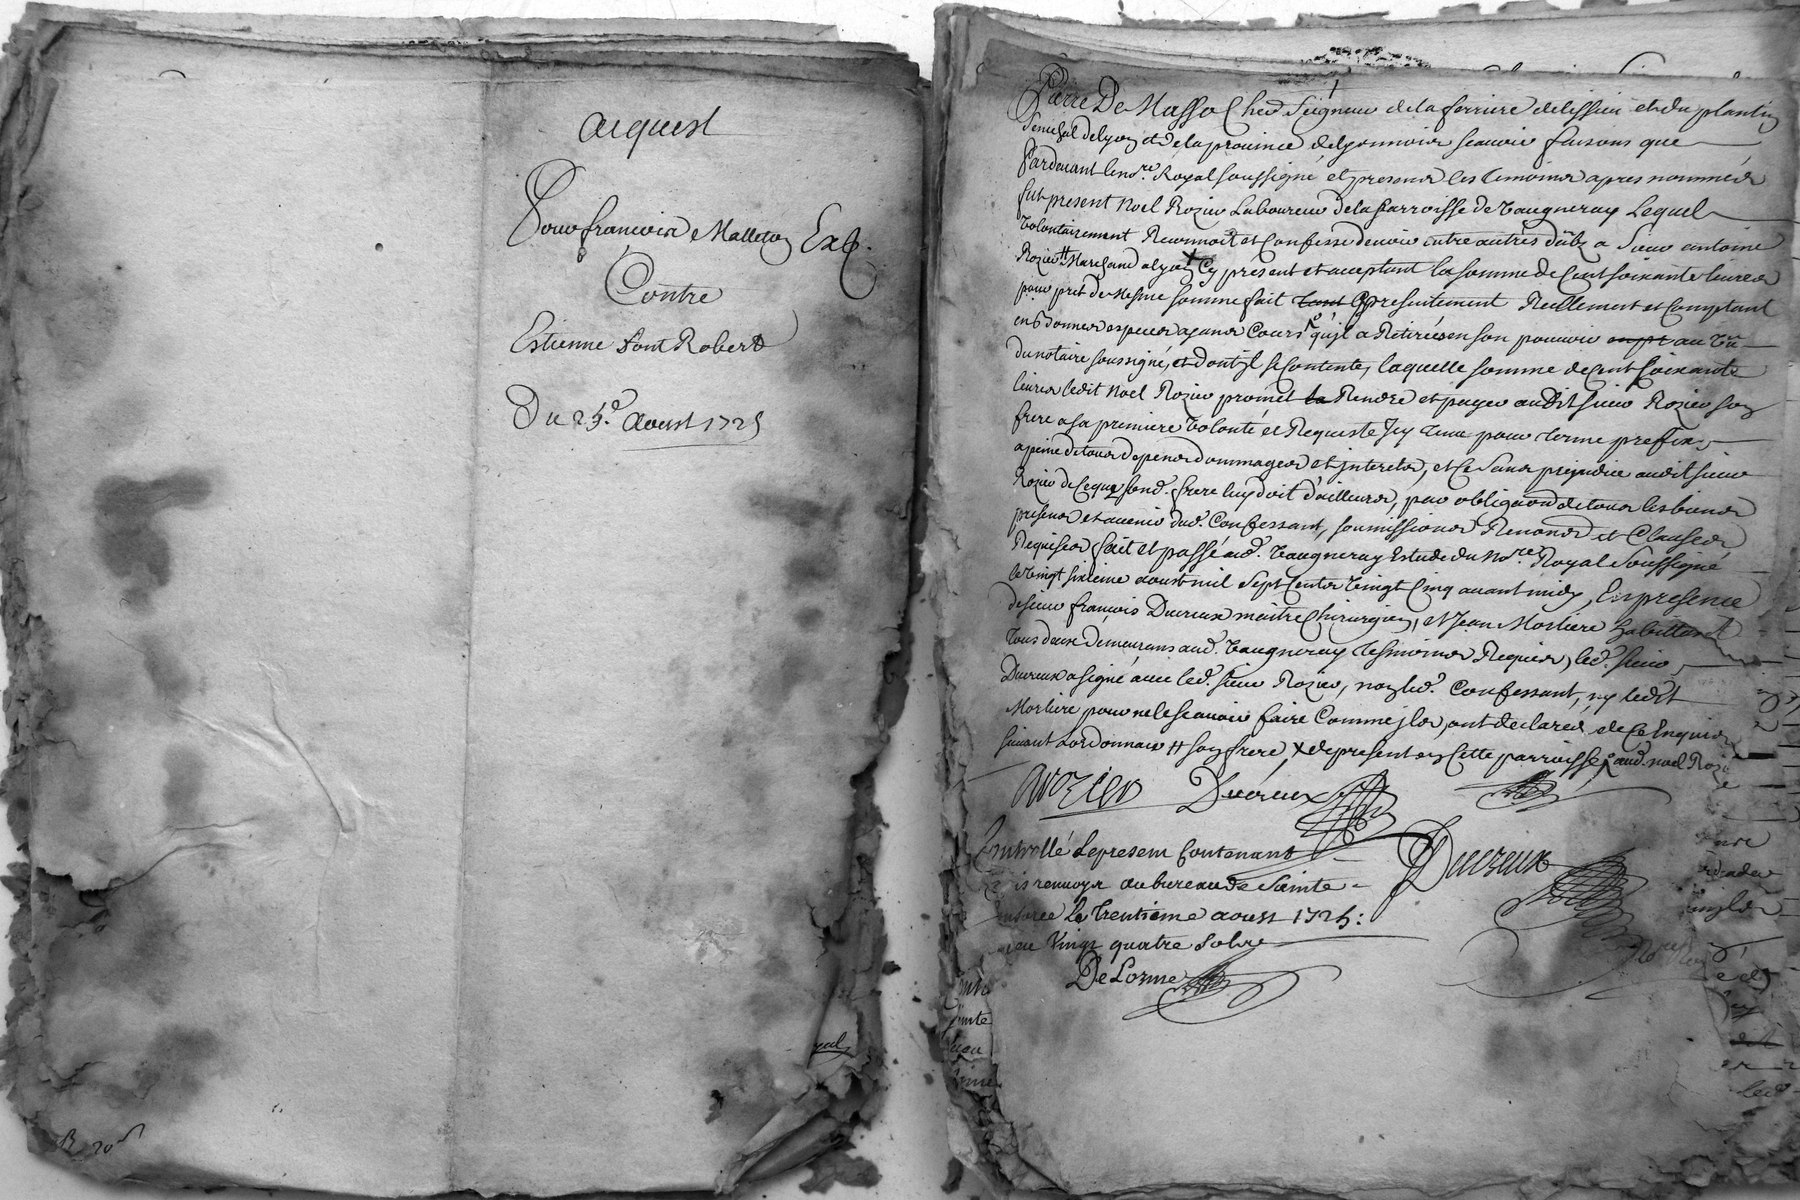 acquest
Pour françois Malleton Exp.
Contre
Estienne Pont Robert
Du 25.e Aoust 1725
B 20
Pierre De Masso Cher Seigneur de la ferriere de lissieu et du plantin
Senechal de lyon et de la province de lyonnois scavoir faisons que
Pardevant le nore. Royal soussigné et presens les temoins apres nommés
fut present Noel Rozier Laboureur de la Parroisse de Vaugneray Lequel
Volontairement Reconnoit et Confesse devoir entre autres dûbs a Sieur antoine
Rozier # Marchand a lyon x Cy present et acceptant la somme de Cent soixante livres
pour prêt de mesme somme fait Cy presentement Reellement et Comptant
en bonnes especes ayans Cours qu'jl a Retirées en son pouvoir au Vu
du notaire soussigné, et dont jl se Contente, laquelle somme de Cent soixante
livres ledit Noel Rozier promet la Rendre et payer audit sieur Rozier son
frere a sa premiere Volonté et Requeste Icy tenu pour terme prefix,
a peine de tous depens dommages et interets, et Ce sans prejudice audit sieur
Rozier de Ceque sond. frere luy doit d'ailleurs, par obligaon de tous les biens
presens et avenir dud. Confessant, soumissions Renonons et Clauses
Requises, fait et passé aud. Vaugneray Estude du Nore. Royal Soussigné
le Vingt sixieme aoust mil sept Cents Vingt Cinq avant midy, En presence
de sieur françois Ducreux maitre Chirurgien, et Jean Morliere habittant
tous deux demeurans aud. Vaugneray tesmoins Requis, led. sieur
Ducreux a signé avec led. sieur Rozier, non led. Confessant, ny ledit
Morliere pour ne le scavoir faire Comme jls ont declarés, de Ce Enquis
suivant Lordonnance # son frere, x de present en Cette parroisse, aud. noel Rozier
A Rozier Ducreux
Controllé Le present Contenant Ducreux
renvoys au bureau de Sainte
Le Trentieme aoust 1725:
Vingt quatre sols
De Lorme